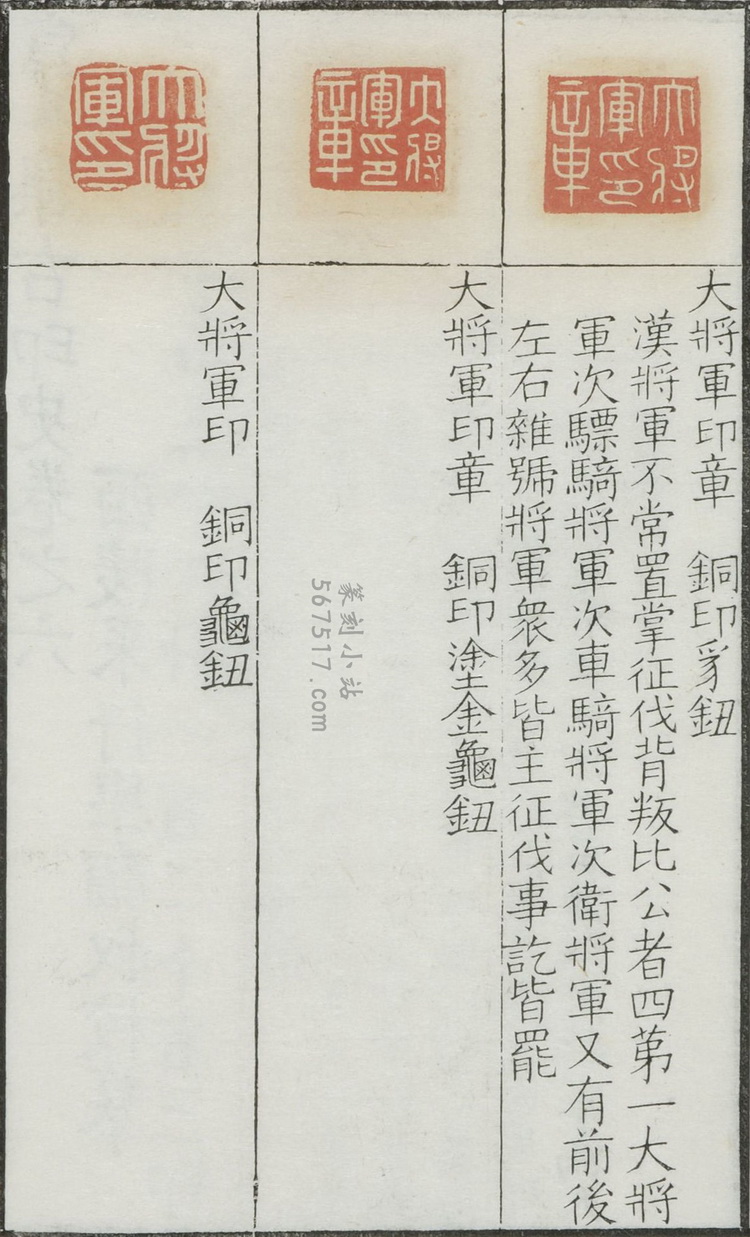 大將
軍印
章
大將軍印章 銅印豸鈕
漢將軍不常置掌征伐背叛比公者四苐一大將
軍次驃騎將軍次車騎將軍次衛將軍又有前後
左右雜號將軍衆多皆主征伐事訖皆罷
大將
軍印
章
大將軍印章 銅印塗金龜鈕
篆刻小站
567517.com
大將
軍印
大將軍印 銅印龜鈕